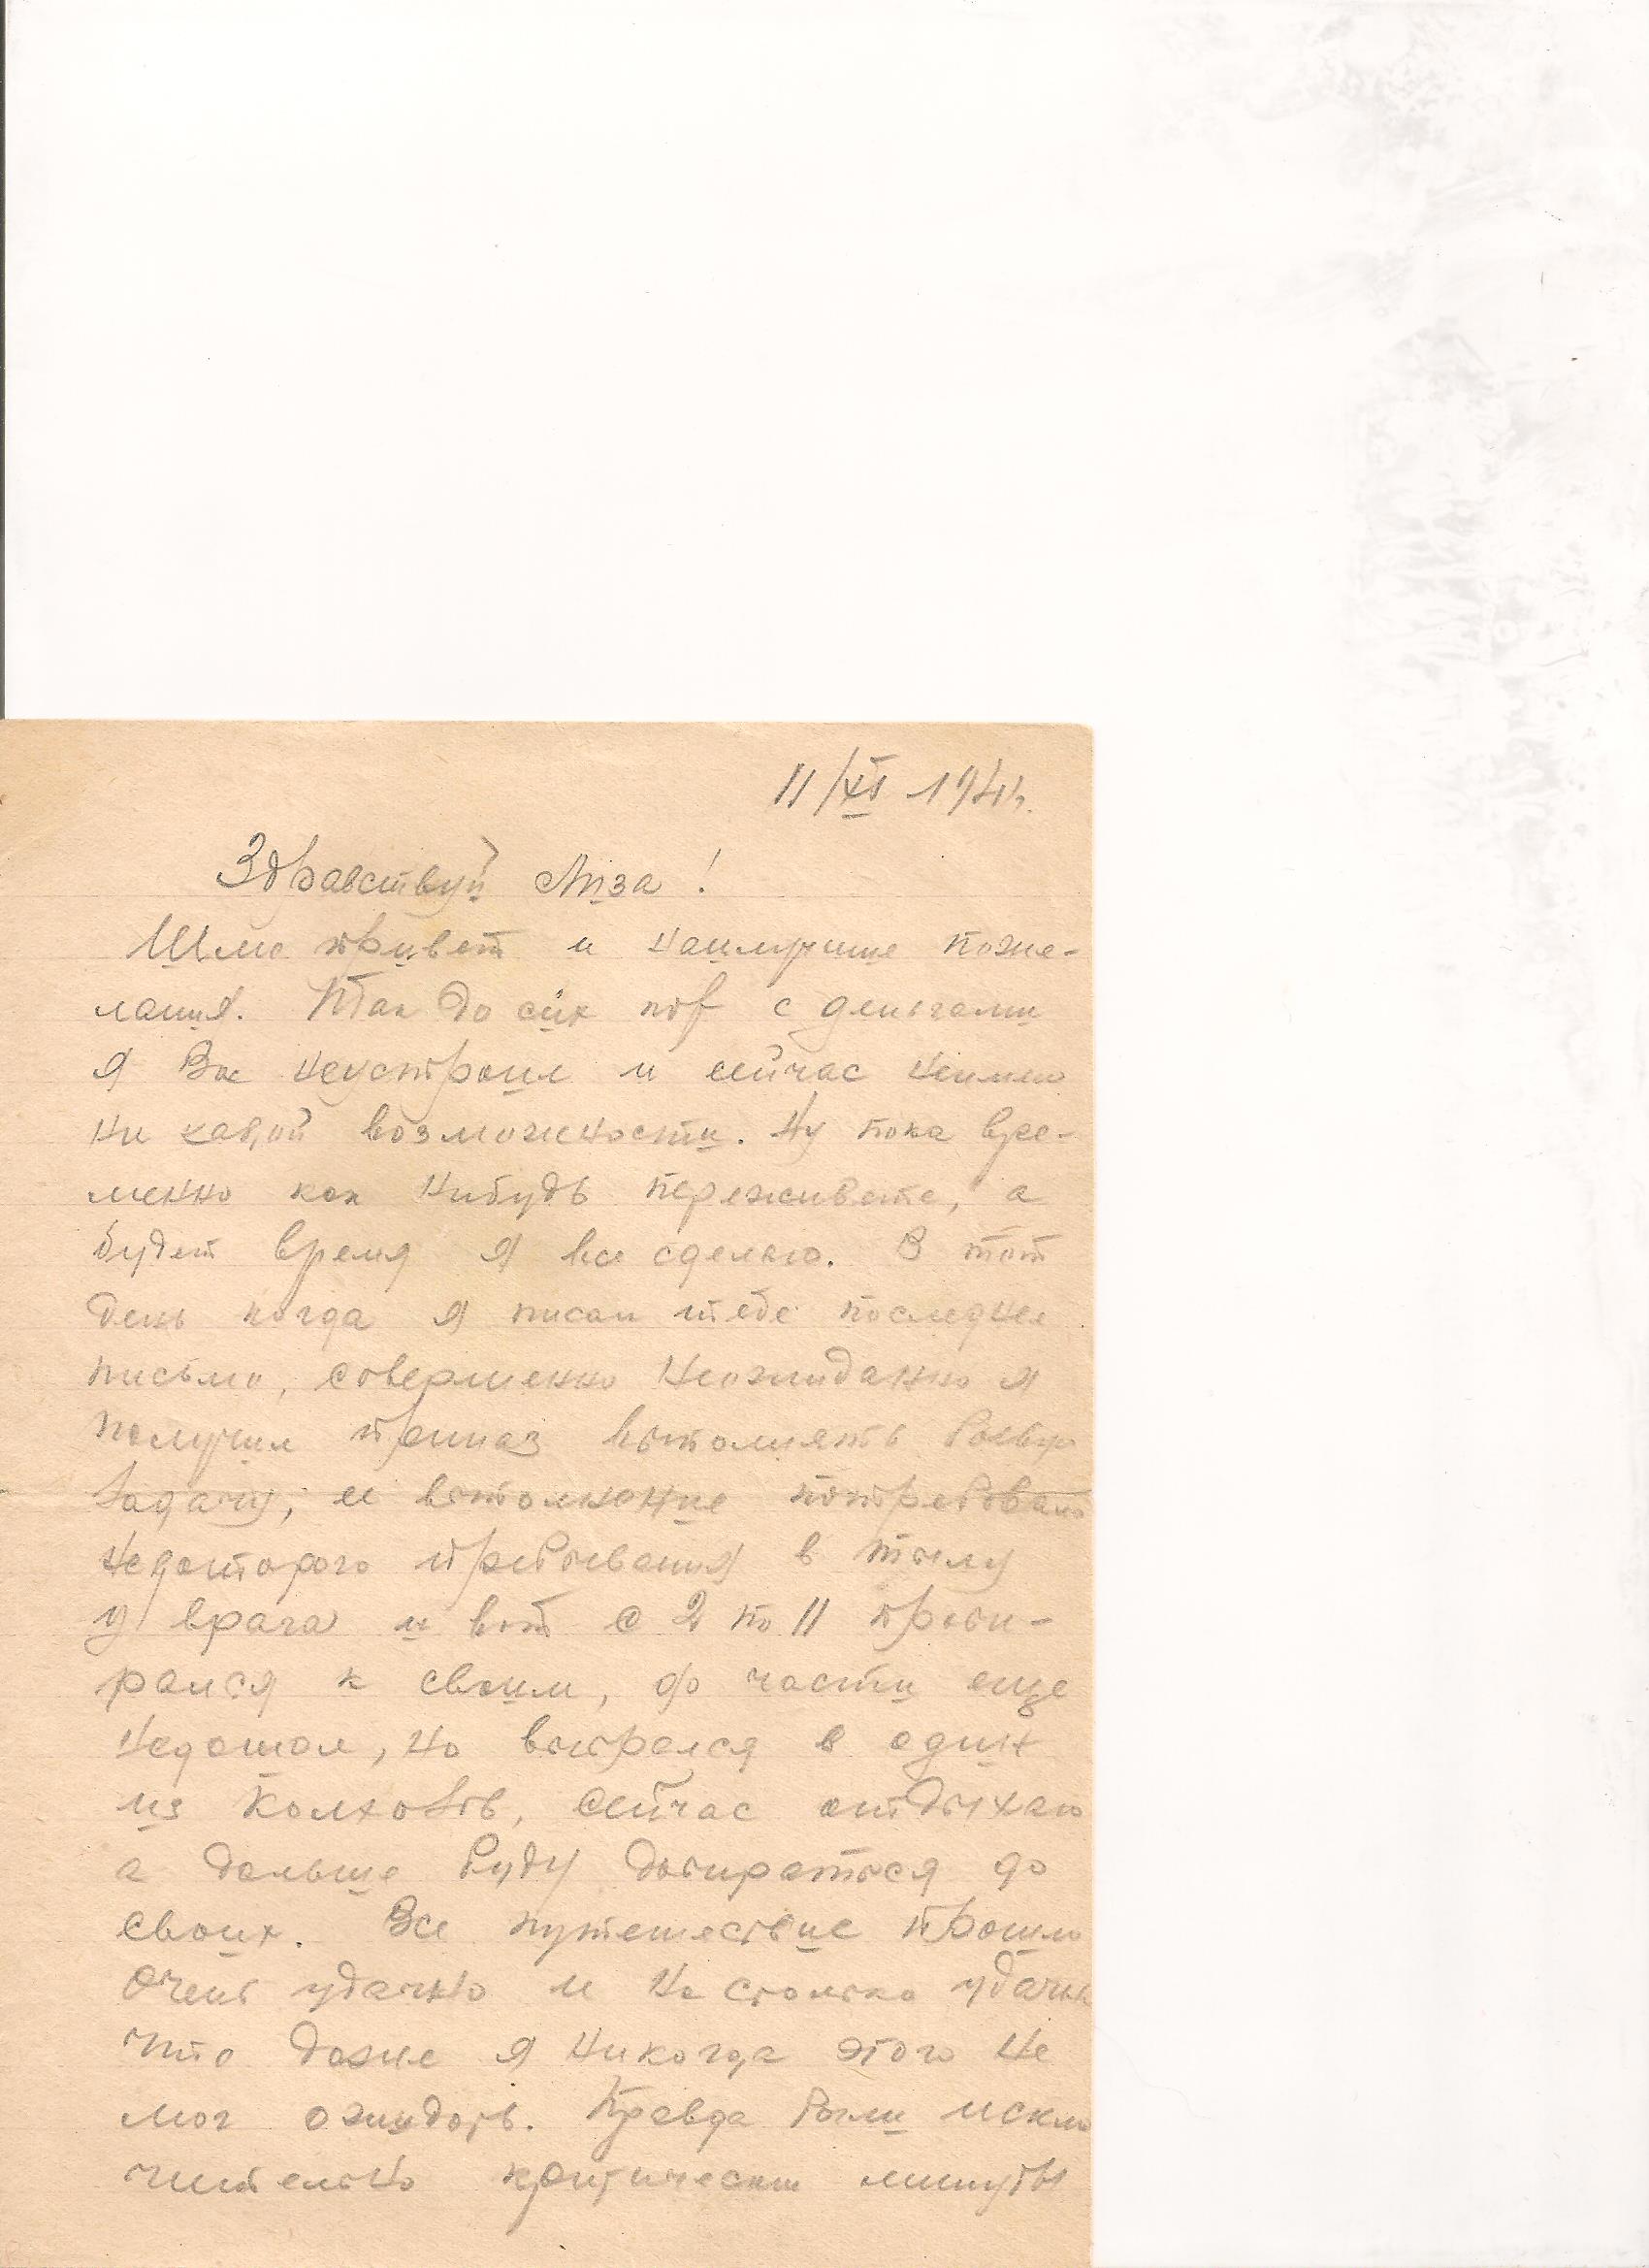 11/XI 1941г.
Здравствуй Лиза!
Шлю привет и наилучшие поже-
лания. Так до сих пор с деньгами
я Вас неустроил и сейчас неимею
ни какой возможности. Ну пока вре-
менно как нибудь переживете, а
будет время я все сделаю. В тот
день когда я писал тебе последнее
письмо, совершенно неожиданно я
получил приказ выполнять боевую
задачу, и выполнение потребовало
некоторого пребывания в тылу
у врага и вот с 2 по 11 проби-
рался к своим, до части еще
недошол, но выбрался в один
из колхозов, сейчас отдыхаю
а дальше буду добираться до
своих. Все путешествие прошло
очень удачно и на столько удачно
что даже я никогда этого не
мог ожидать. Правда были исклю
чительно критические минуты